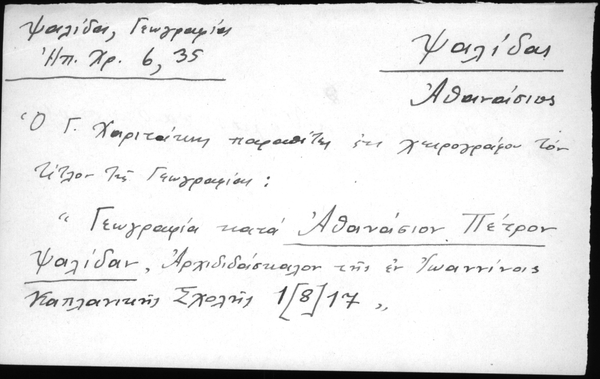 Ψαλίδας, Γεωγραφίας
Ἠπ. Χρ. 6, 35
Ψαλίδας
Ἀθανάσιος
Ὁ Γ. Χαριτάκης παραθέτει ἐκ χειρογράφου τὸν
τίτλον τῆς Γεωγραφίας:
“Γεωγραφία κατά Ἀθανάσιον Πέτρον
Ψαλίδαν, Ἀρχιδιδάσκαλον τῆς ἐν Ἰωαννίνοις
Καπλανικῆς Σχολῆς 1[8]17„